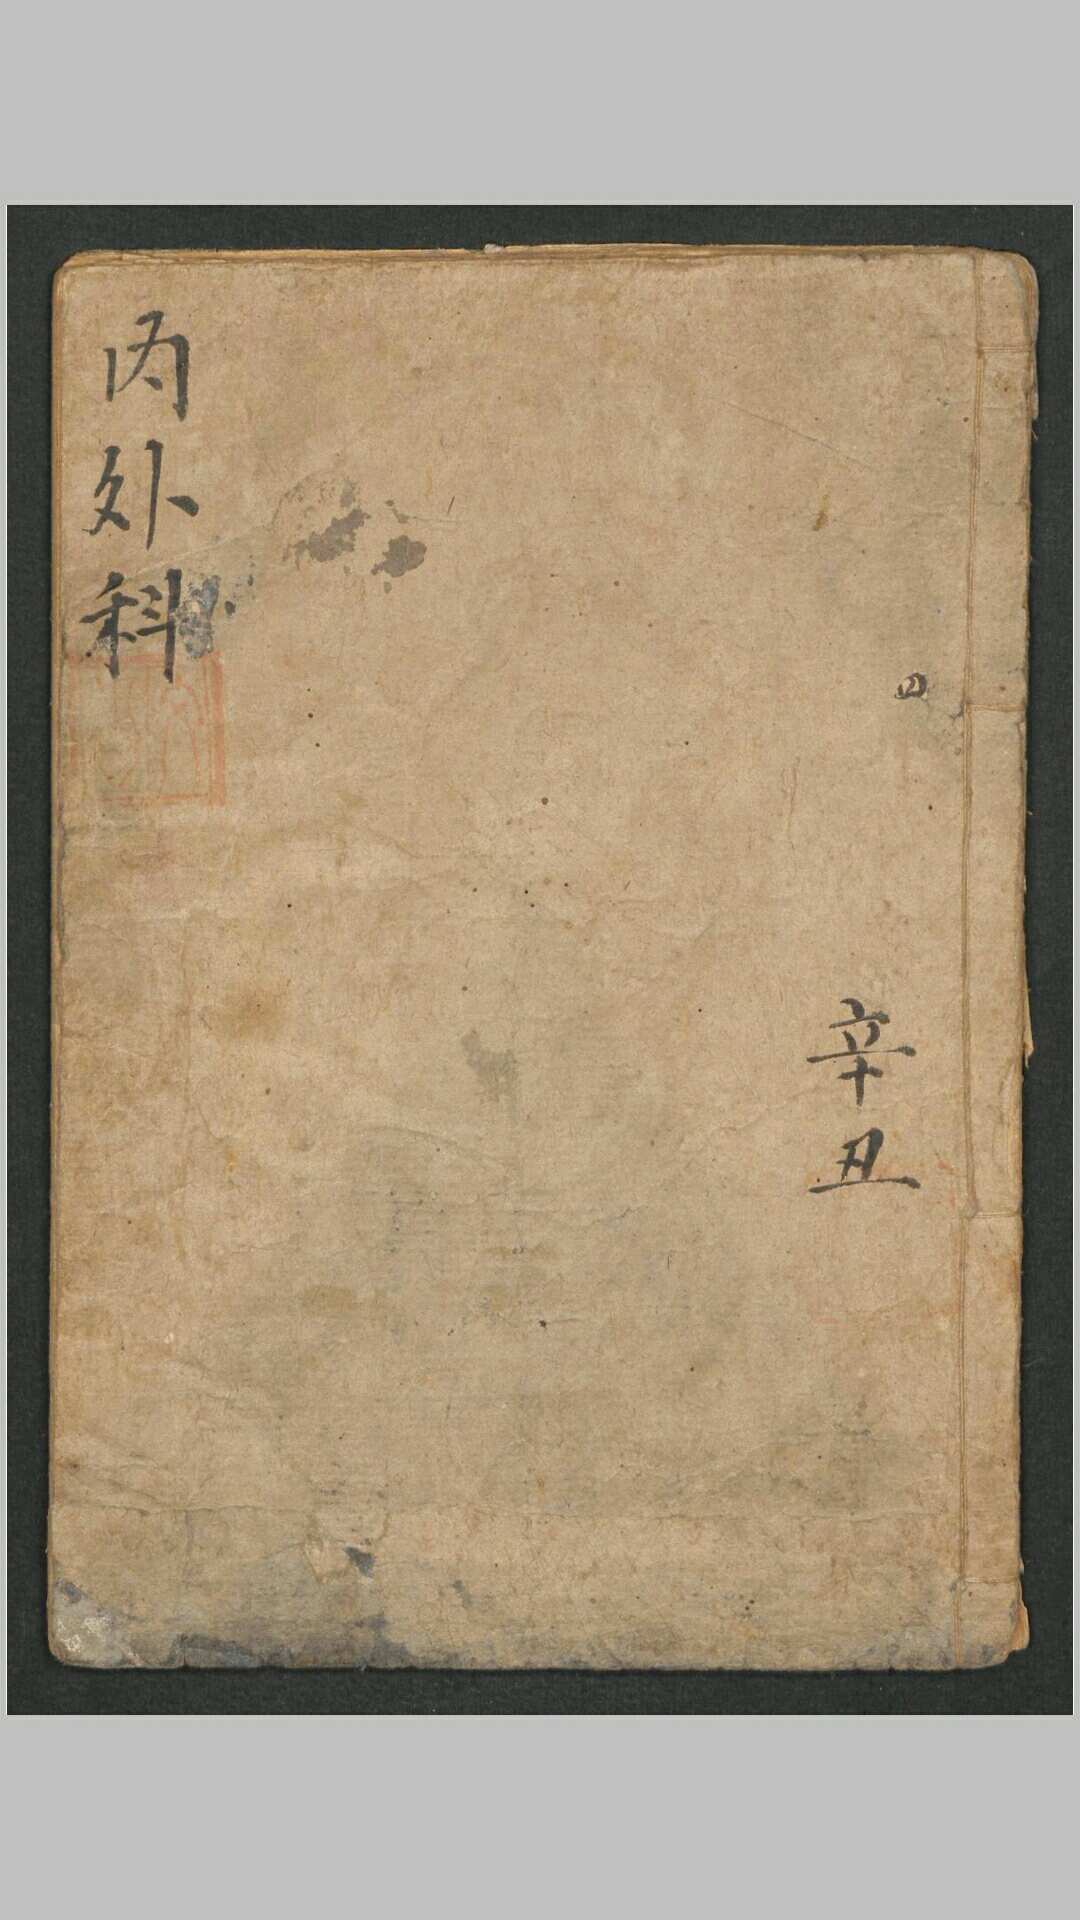 辛丑
内外科